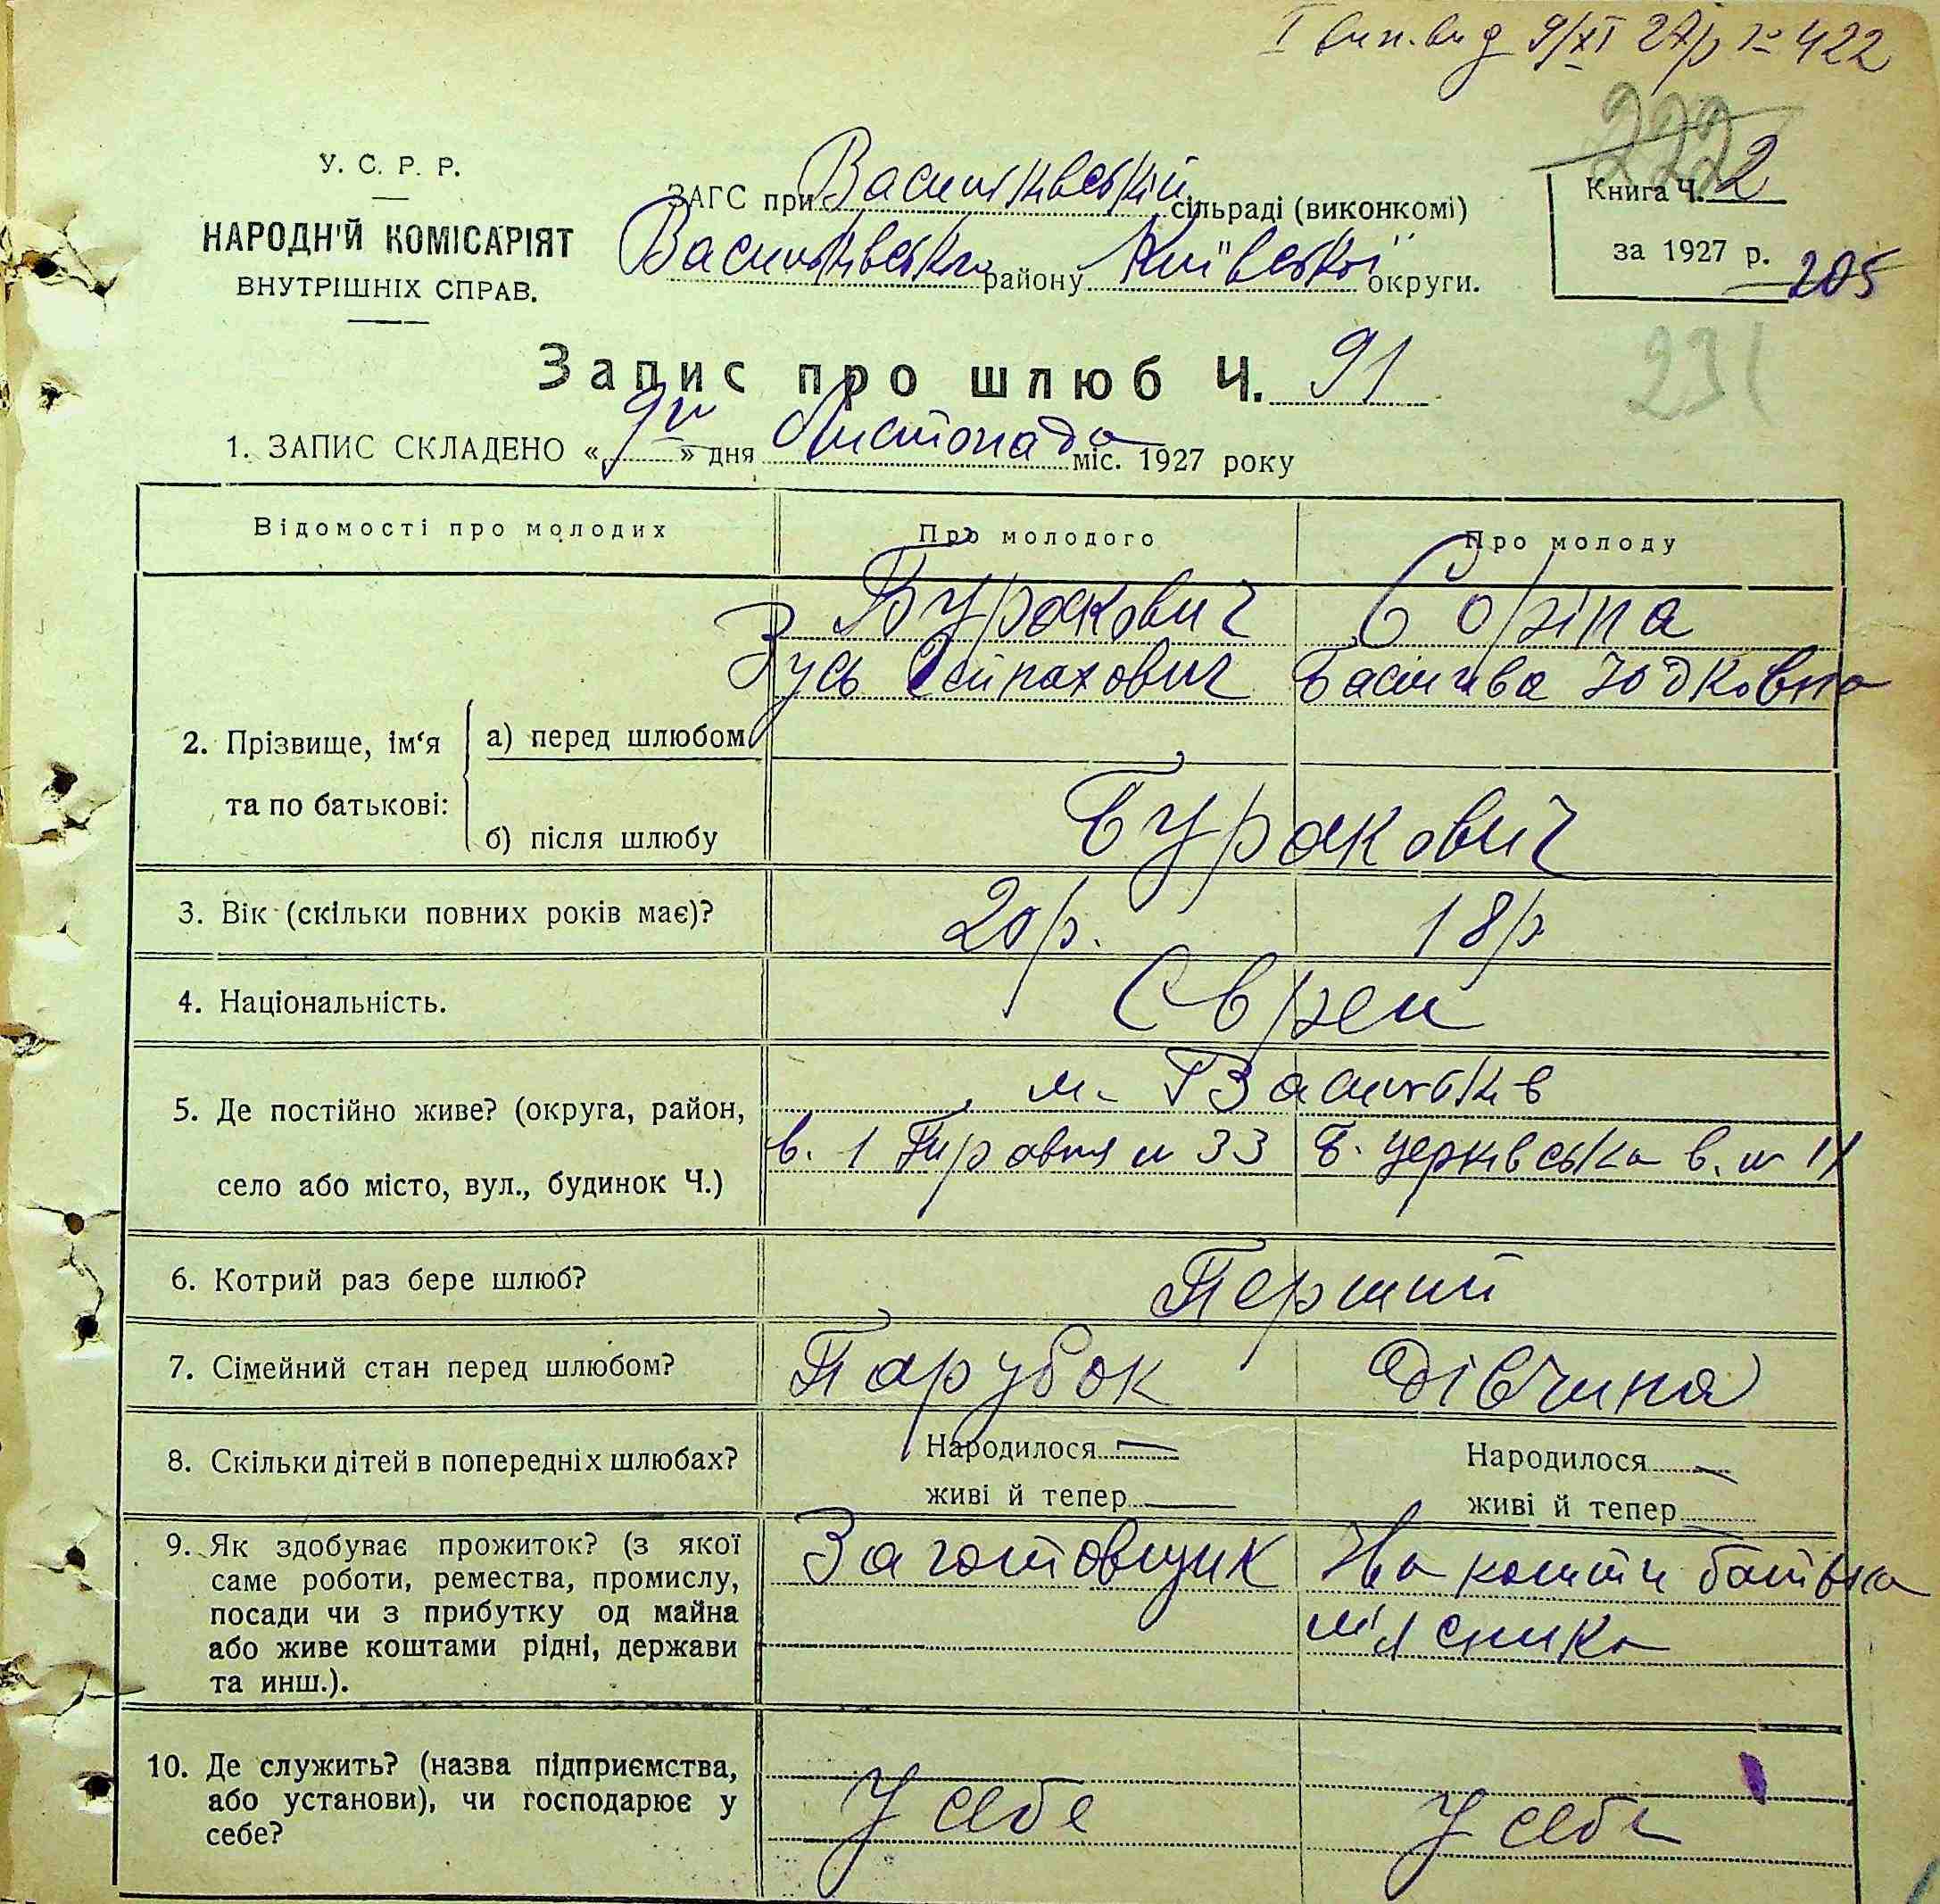 І вип. вид 9/XI 27р № 422
222
У. С. Р. Р.
НАРОДНІЙ КОМІСАРІЯТ
ВНУТРІШНІХ СПРАВ.
ЗАГС при Васильківській сільраді (виконкомі)
Васильківського району Київської округи.
Книга Ч. 2
за 1927 р.
205
231
Запис про шлюб Ч. 91
1. ЗАПИС СКЛАДЕНО « 9 » дня Листопада міс. 1927 року
Відомості про молодих Про молодого Про молоду
Буракович Соріна
Зусь Басшива Юдковна
2. Прізвище, ім‘я та по батькові:
а) перед шлюбом
б) після шлюбу
Буракович
3. Вік (скільки повних років має)? 20р. 18р
4. Національність. Євреи
5. Де постійно живе? (округа, район,
село або місто, вул., будинок Ч.)
м. Васильків
в. 1 № 33 Б. церківська в. № 11
6. Котрий раз бере шлюб? Перший
7. Сімейний стан перед шлюбом? Парубок Дівчина
8. Скільки дітей в попередніх шлюбах? Народилося — Народилося —
живі й тепер — живі й тепер —
9. Як здобуває прожиток? (з якої
саме роботи, ремества, промислу,
посади чи з прибутку од майна
або живе коштами рідні, держави
та инш.).
Заготовщик На кошти батька
мʼясника
10. Де служить? (назва підприємства,
або установи), чи господарює у
себе?
У себе У себе